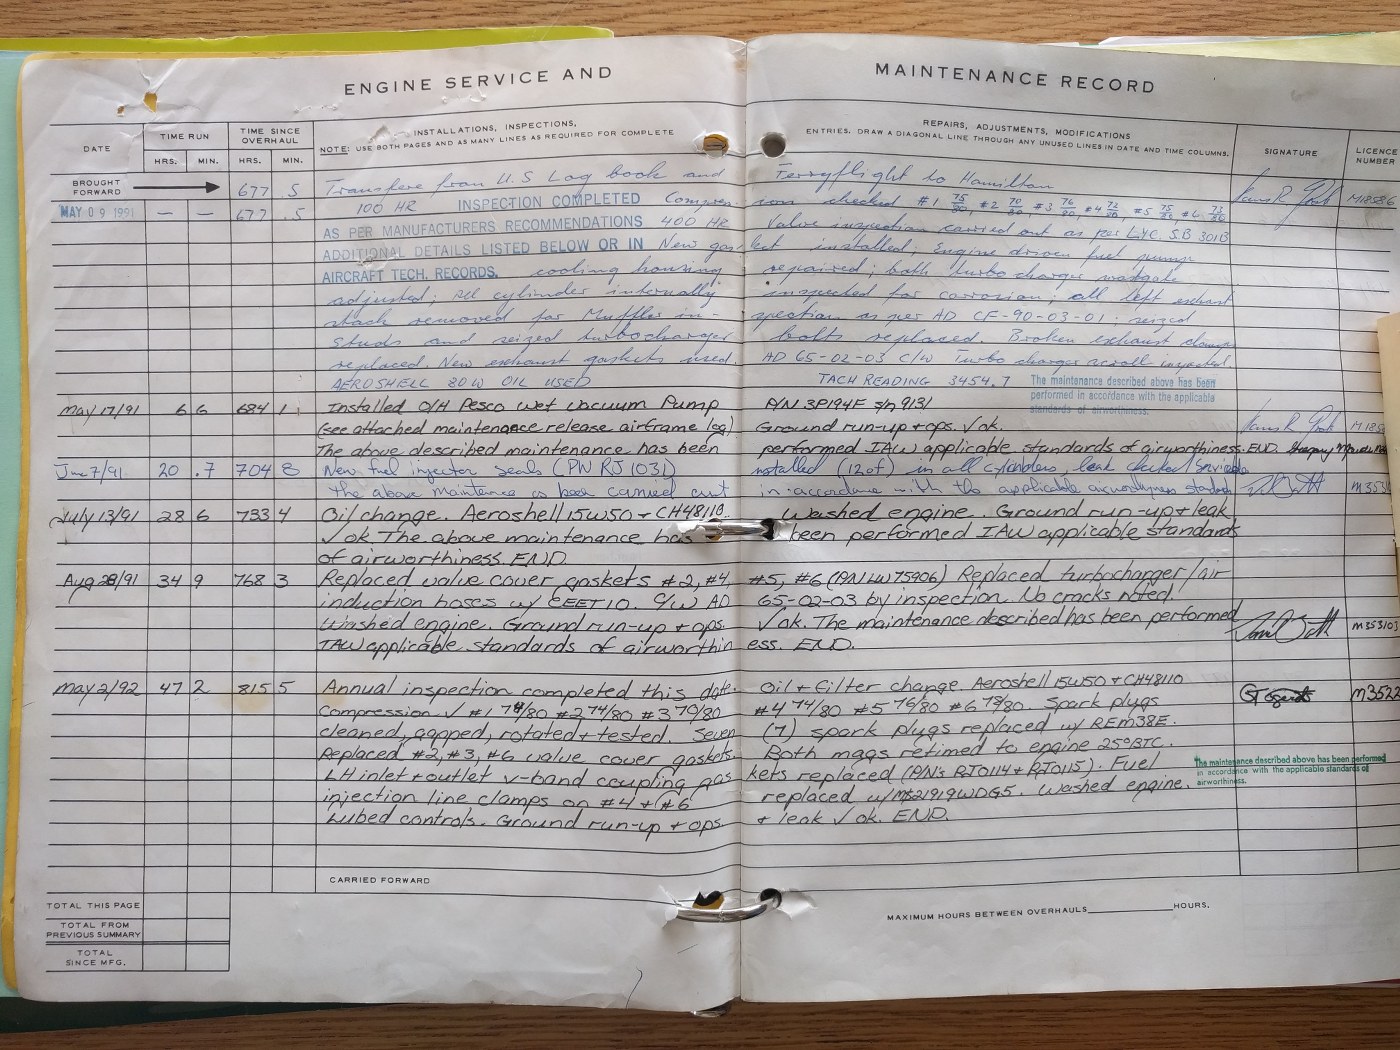 ENGINE SERVICE AND MAINTENANCE RECORD
DATE TIME RUN TIME SINCE OVERHAUL INSTALLATIONS, INSPECTIONS, REPAIRS, ADJUSTMENTS, MODIFICATIONS SIGNATURE LICENCE NUMBER
HRS. MIN. HRS. MIN. NOTE: USE BOTH PAGES AND AS MANY LINES AS REQUIRED FOR COMPLETE ENTRIES. DRAW A DIAGONAL LINE THROUGH ANY UNUSED LINES IN DATE AND TIME COLUMNS.
BROUGHT FORWARD 677 .5 Transfere from U.S Log book and Ferryflight to Hamilton
MAY 09 1991 — — 677 .5 100 HR INSPECTION COMPLETED Compression checked #1 75/80, #2 70/80, #3 76/80, #4 72/80, #5 75/80 #6 73/80
AS PER MANUFACTURERS RECOMMENDATIONS 400 HR Valve inspection carried out as per LYC. S.B 301B
ADDITIONAL DETAILS LISTED BELOW OR IN New gas installed; Engine driven fuel pump
AIRCRAFT TECH. RECORDS. cooling housing repaired; both turbo charger wastgate
adjusted; all cylinder internally inspected for corrosion; all left exhaust
stack removed for Muffler inspection as per AD CF-90-03-01; seized
studs and seized turbocharger bolts replaced. Broken exhaust clamps
replaced. New exhaust gaskets used. AD 65-02-03 C/W Turbo charger scroll inspected.
AEROSHELL 80W OIL USED TACH READING 3454.7 The maintenance described above has been
performed in accordance with the applicable
standards of airworthiness.
May 17/91 6 6 684 1 Installed O/H Pesco wet vacuum Pump P/N 3P194F s/n 9131
(see attached maintenance release airframe log) Ground run-up + ops. √ ok.
The above described maintenance has been performed IAW applicable standards of airworthiness. END.
June 7/91 20 .7 704 8 New fuel injector seals (PN RJ 1031) installed (12 of) in all cylinders, leak checked
the above maintence is been carried out in accordance with the applicable airworthyness
July 13/91 28 6 733 4 Oil change. Aeroshell 15W50 + CH48110. Washed engine. Ground run-up + leak
√ ok The above maintenance has been performed IAW applicable standards
of airworthiness. END.
Aug 28/91 34 9 768 3 Replaced valve cover gaskets #2, #4, #5, #6 (P/N LW75906) Replaced turbocharger/air
induction hoses w/ CEET10. C/W AD 65-02-03 by inspection. No cracks noted.
Washed engine. Ground run-up + ops. √ ok. The maintenance described has been performed M353103
IAW applicable standards of airworthiness. END.
May 2/92 47 2 815 5 Annual inspection completed this date. Oil + filter change. Aeroshell 15W50 + CH48110 M3522
Compression √ #1 74/80 #2 74/80 #3 70/80 #4 74/80 #5 76/80 #6 78/80. Spark plugs
cleaned, gapped, rotated + tested. Seven (7) spark plugs replaced w/ REM38E.
Replaced #2, #3, #6 valve cover gaskets. Both mags retimed to engine 25° BTC.
LH inlet + outlet v-band coupling gaskets replaced (P/N's RJ0114 + RJ0115). Fuel
injection line clamps on #4 + #6 replaced w/ MS21919WDG5. Washed engine.
Lubed controls. Ground run-up + ops. + leak √ ok. END.
The maintenance described above has been performed
in accordance with the applicable standards of
airworthiness.
CARRIED FORWARD
TOTAL THIS PAGE
TOTAL FROM PREVIOUS SUMMARY
TOTAL SINCE MFG.
MAXIMUM HOURS BETWEEN OVERHAULS HOURS.